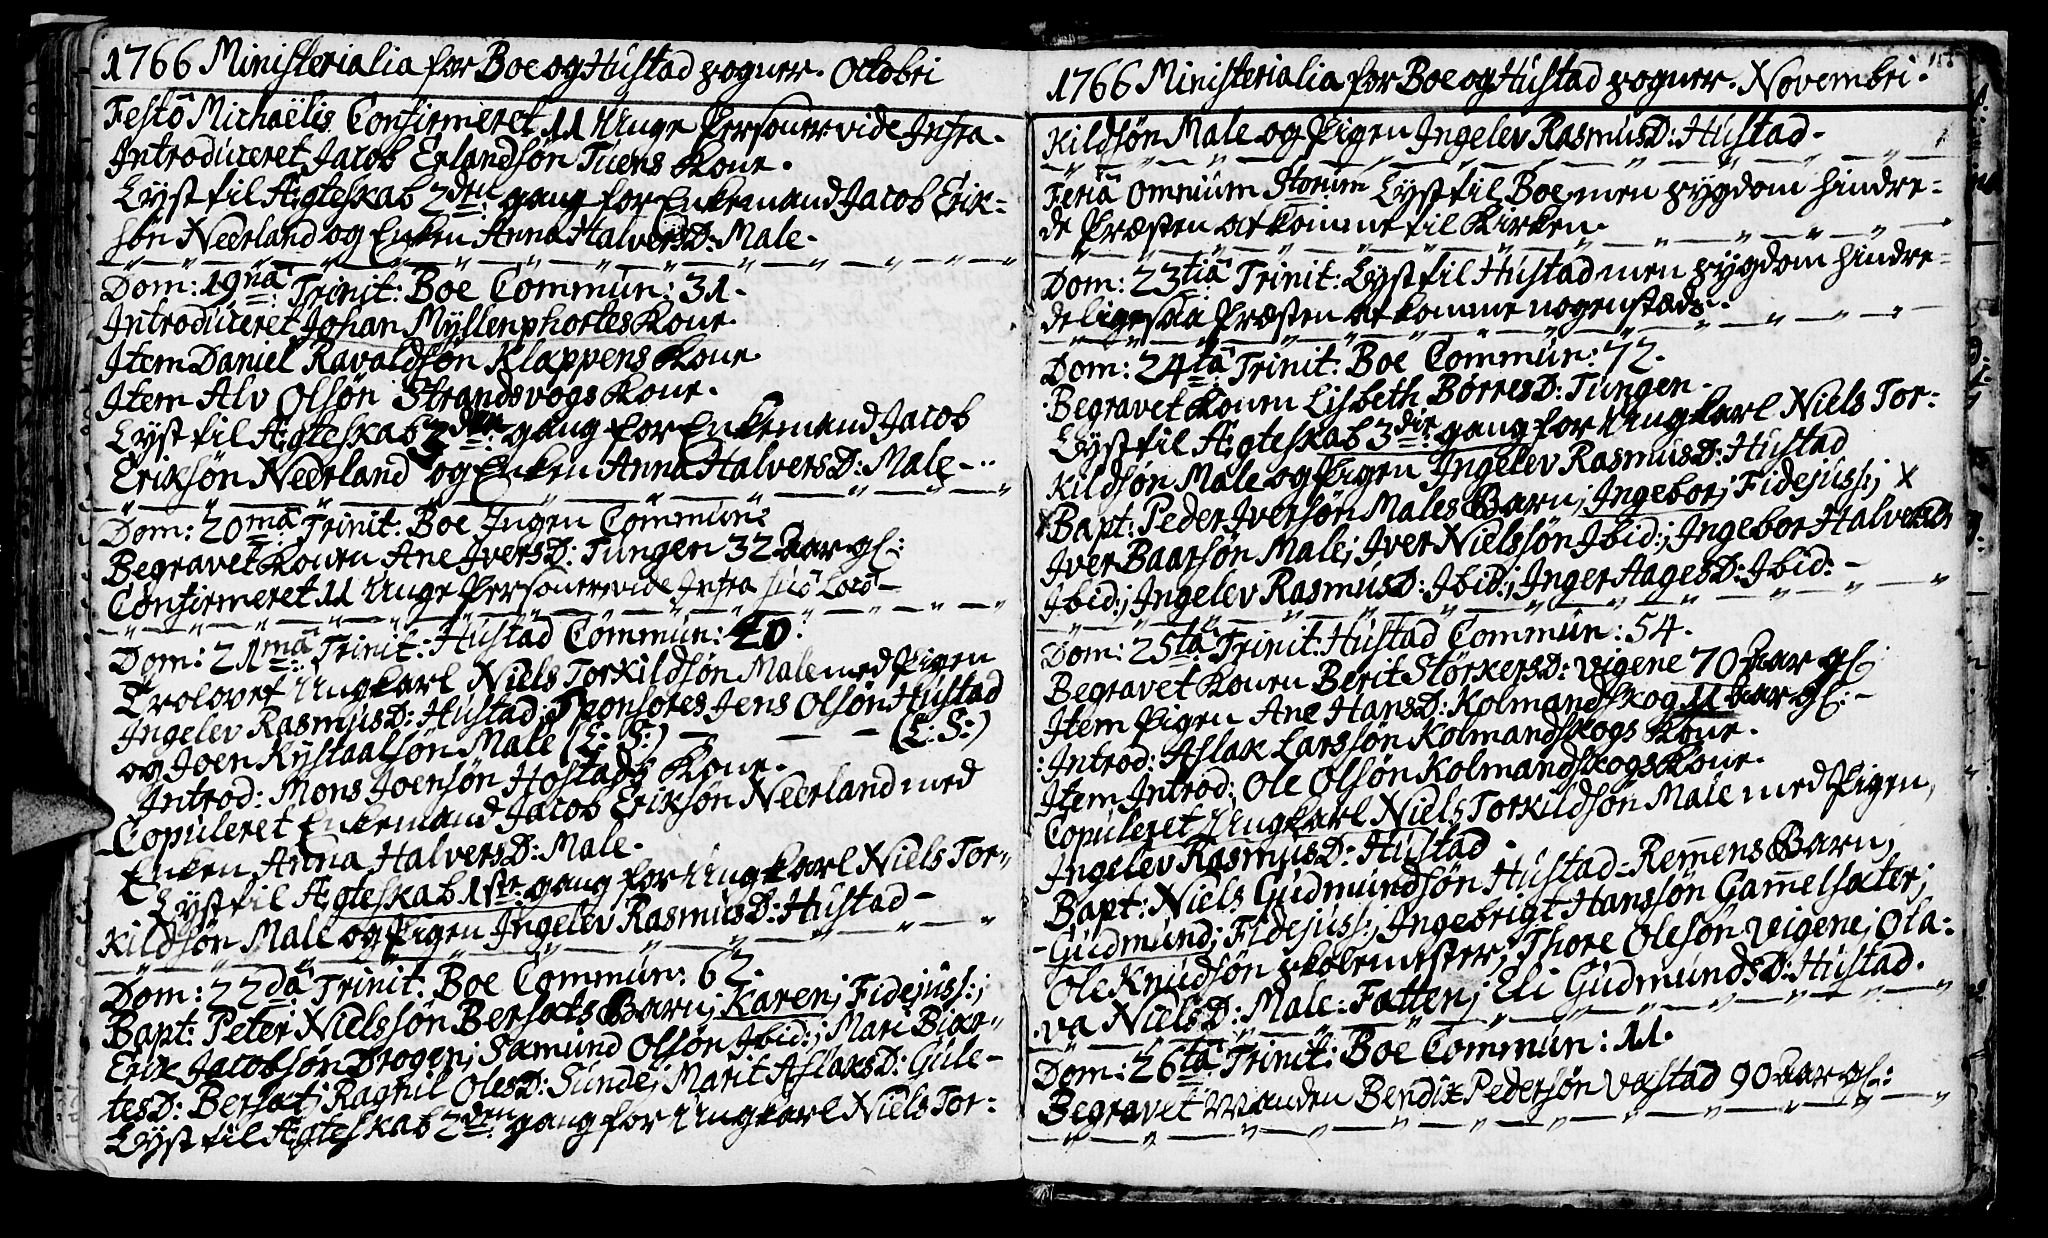 1766 Ministerialia for Boe og Hústad sogner. Octobri
Festo Michaëlis Confirmeret 11 Unge Personer vide Infra.
Introdúceret Jacob Erlandsøn Túens Kone.
Lyst til Ægteskab 2den gang for Enkemand Jacob Erik-
søn Neerland og Enken Anna HalversD: Male.
Dom: 19na Trinit: Boe Commún: 31.
Introdúceret Johan Myllenphortes Kone.
Item Daniel Ravaldsøn Klappens Kone
Item Alv Olsøn Strandsvogs Kone.
Lyst til Ægteskab 3die gang for Enkemand Jacob
Eriksøn Neerland og Enken Anna HalversD: Male-
Dom: 20ma Trinit: Boe Ingen Commún:
Begravet Konen Ane IversD: Túngen 32 Aar gl:
Confirmeret 11 Unge Personer vide Infra súo Loco-
Dom: 21ma Trinit: Hústad Commún: 40.
Trolovet Ungkarl Niels Torkildsøn Male med Pigen
Ingelev RasmúsD: Hústad; Sponsores Jens Olsøn Hústad
og Joen Rystaalsøn Male (L: S:) - - - (L: S:)
Introd: Mons Joensøn Hostads Kone.
Copúleret Enkemand Jacob Eriksøn Neerland med
Enken Anna HalversD: Male.
Lyst til Ægteskab 1ste gang for Ungkarl Niels Tor-
kildsøn Male og Pigen Ingelev RasmúsD: Hústad-
Dom: 22da Trinit: Boe Commún: 62.
Bapt: Peter Nielssøn Bersets Barn; Karen; Fidejúss:;
Erik Jacobsøn Drogen; Samúnd Olsøn Ibid:; Mari Biør-
tesD: Bersæt; Ragnil OlesD: Súnde; Marit AslaksD: Gúle-
Lyst til Ægteskab 2den gang for Ungkarl Niels Tor-
1766 Ministerialia for Boe og Hústad sogner. Novembri.
kildsøn Male og Pigen Ingelev RasmúsD: Hústad-
Feria Omniúm Storúm Lyst til Boe, men sygdom hindre-
de Præsten at komme til Kirken.
Dom: 23tia Trinit: Lyst til Hústad men sygdom hindre-
de ligesaa Præsten at komme nogenstæds.
Dom: 24ta Trinit: Boe Commún: 72.
Begravet Konen Lisbeth BørresD: Túngen.
Lyst til Ægteskab 3die gang for Ungkarl Niels Tor-
kildsøn Male og Pigen Ingelev RasmúsD: Hústad
Bapt: Peder Iversøn Males Barn; Ingebor; Fidejúss:; x
Iver Baarsøn Male; Iver Nielssøn Ibid:; Ingebor HalversD:
Ibid:; Ingelev RasmúsD: Ibid:; Inger AagesD: Ibid:-
Dom: 25ta Trinit: Hústad Commún: 54.
Begravet Konen Berit StørkersD: Vigene 70 Aar gl:
Item Pigen Ane HansD: Kolmandskog 11 Aar gl:-
Introd: Aslak Larssøn Kolmandskogs Kone.
Item Introd: Ole Olsøn Kolmandskogs Kone.
Copúleret Ungkarl Niels Torkildsøn Male med Pigen,
Ingelev RasmúsD: Hústad.
Bapt: Niels Gúdmúndsøn Hústad-Remens Barn;
Gúdmúnd; Fidejúss:; Ingebrigt Hanssøn Gamelsæter;
Ole Knúdsøn skolemester; Thore Olesøn Veigene; Ola-
va NielsD: Male-Fatten; Eli GúdmúndsD: Hústad.
Dom: 26ta Trinit: Boe Commún: 11.
Begravet Manden Bendix Pedersøn Vastad 90 Aar gl: